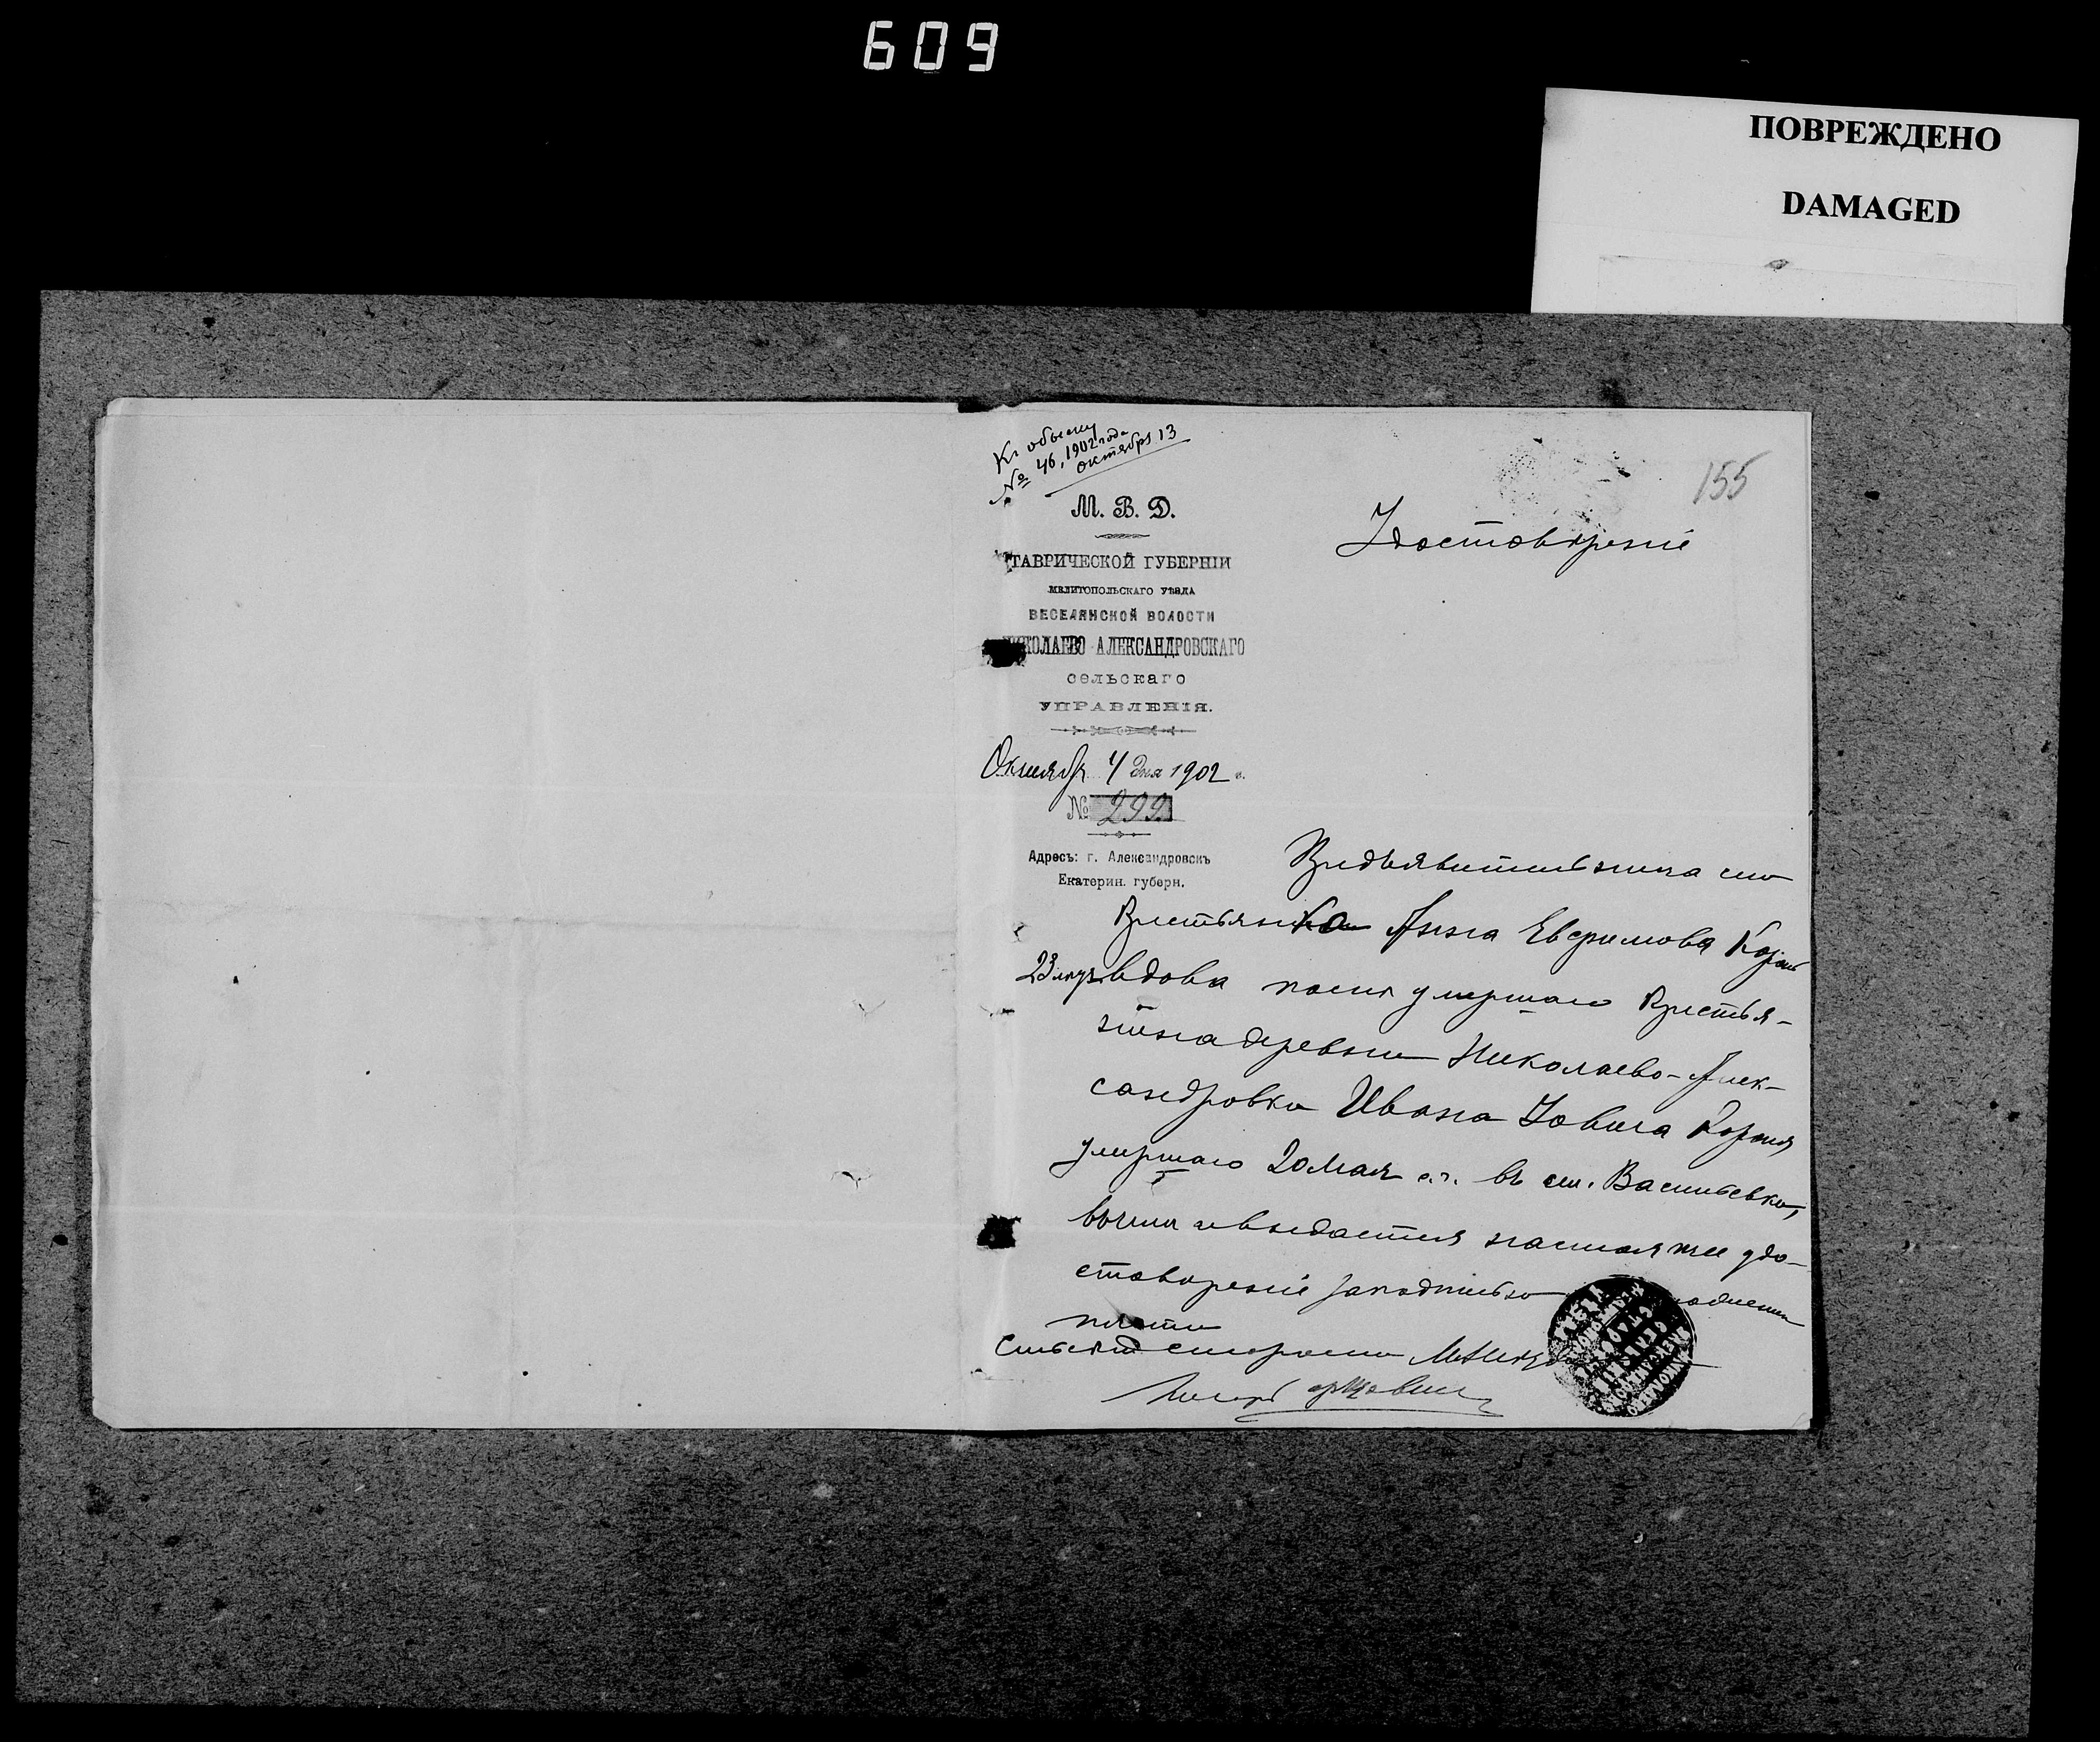 609
ПОВРЕЖДЕНО
DAMAGED
155
Къ обыску
№ 46, 1902 года
октября 13
М. В. Д.
ТАВРИЧЕСКОЙ ГУБЕРНІИ
МЕЛИТОПОЛЬСКАГО УѢЗДА
ВЕСЕЛЯНСКОЙ ВОЛОСТИ
НИКОЛАЕВО АЛЕКСАНДРОВСКАГО
СЕЛЬСКАГО
УПРАВЛЕНІЯ.
Октября 4 дня 1902 г.
№ 299
Адресъ: г. Александровскъ
Екатерин. губерн.
Удостовѣреніе
Предъявительница сего
Крестьянка Анна Евфимова
23 лѣтъ вдова послѣ умершаго крестья-
нина деревни Николаево-Алек-
сандровки Ивана Іовича
умершаго 20 Мая с.г. въ сел. Васильевкѣ,
въ чемъ и выдается настоящее удо-
стовѣреніе за подписью
печати
Сельскій староста
Писарь